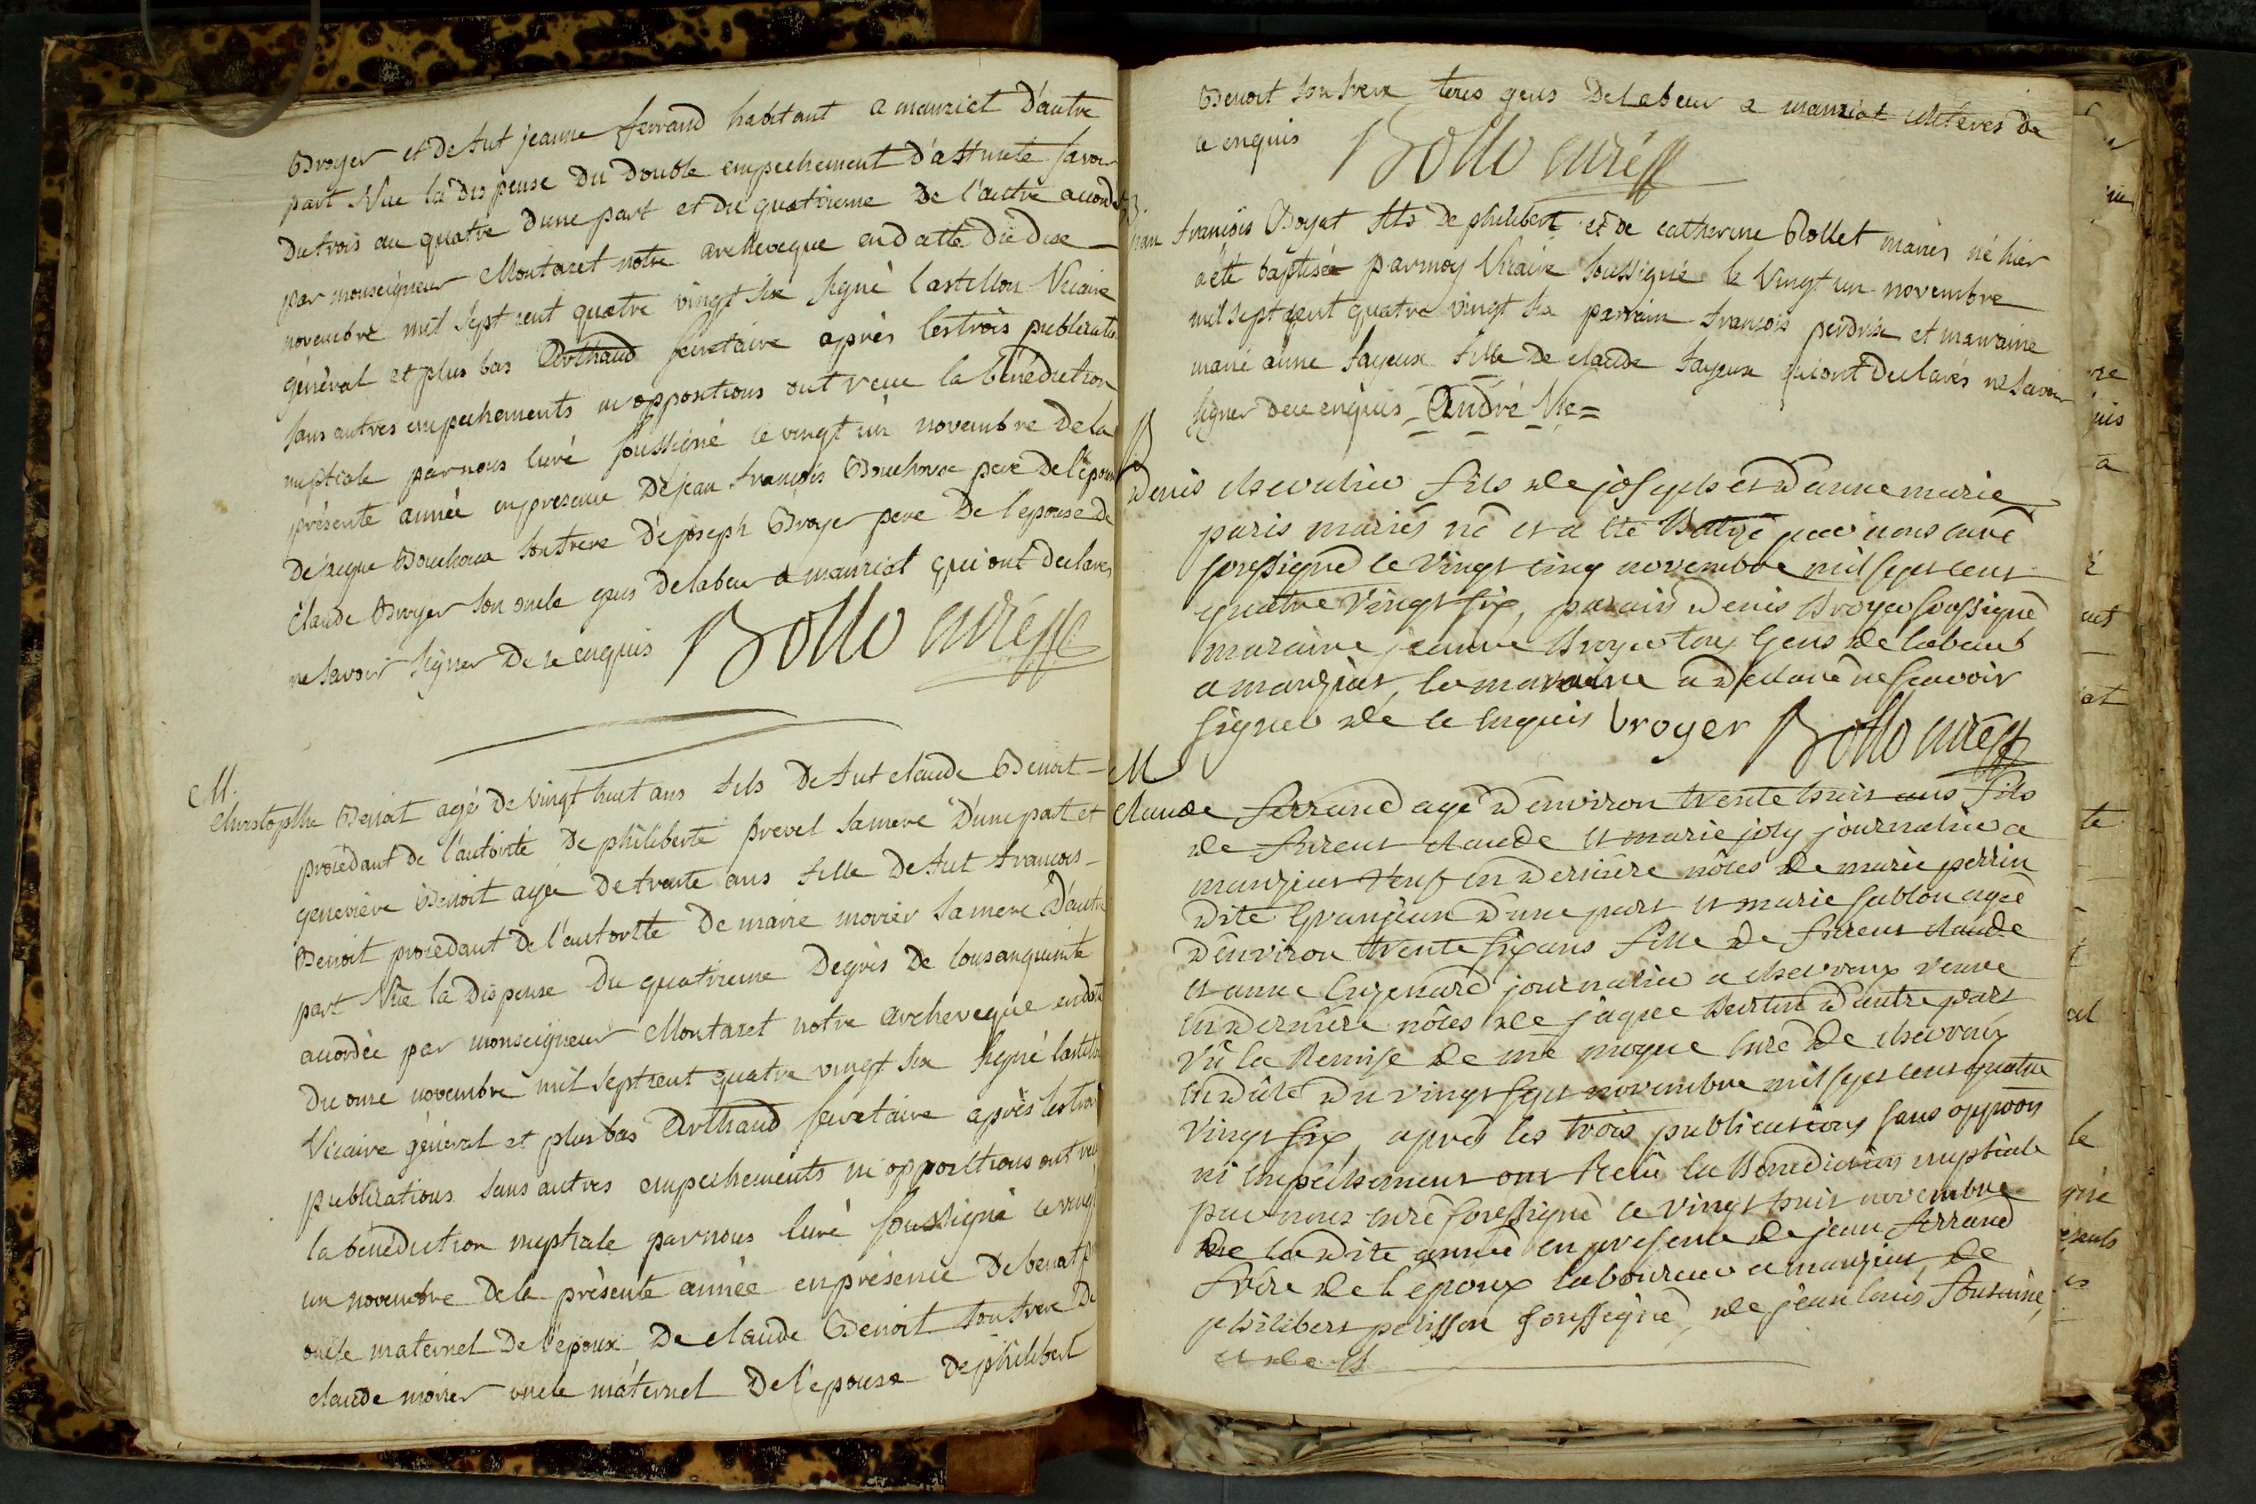 Broyer et de fut jeanne ferrand habitant a manziat d'autre
part Vue la dispense du double empechement d'affinite savoir
du trois au quatre d'une part et du quatrieme de l'autre accordé
par monseigneur Montazet notre archeveque en datte du dix
novembre mil sept cent quatre vingt six signé Castillon Vicaire
général et plus bas Arthaud secretaire après les trois publicats
sans autres empechements ni oppositions ont reçu la bénédiction
nuptiale par nous curé soussigné ce vingt un novembre de la
présente année en presence de jean francois Bouchoux pere de l'epoux
de Bouchoux son frere de joseph Broyer pere de l'epouse de
claude Broyer son oncle gens de labeur a manziat qui ont declarés
ne savoir signer de ce enquis Bollo curé
M.
Christophle Benoit agé de vingt huit ans fils de fut claude Benoit
procédant de l'autorité de philiberte prevel sa mere d'une part et
geneviève Benoit agée de trente ans fille de fut francois
Benoit procedant de l'autorité de marie morier sa mere d'autre
part Vue la dispense du quatrieme degrés de consanguinité
accordée par monseigneur Montazet notre archeveque en date
du onze novembre mil sept cent quatre vingt six signé Castillon
Vicaire général et plus bas Arthaud secretaire après les trois
publications sans autres empechements ni oppositions ont reçu
la bénédiction nuptiale par nous curé soussigné ce vingt
un novembre de la présente année en présence de benoit
oncle maternel de l'epoux de claude Benoit son frere de
claude morier oncle maternel de l'epouse de philibert
Benoit son frere tous gens de labeur a manziat illiteres de
ce enquis Bollo curé
francois Boyat fils de philibert et de catherine Rollet mariés né hier
a été baptisé par moy Vicaire soussigné le Vingt un novembre
mil sept cent quatre vingt six parrain francois perdrix et marraine
marie anne sayeux fille de claude sayeux qui ont declarés ne savoir
signer de ce enquis André Vic=
B
Denis chevalier fils de joseph et d'anne marie
paris mariés né et a été Batizé par nous curé
soussigné le vingt cinq novembre mil sept cent
quatre vingt six, parain denis Broyer soussigné
maraine jeanne Broyer tous gens de labeur
a manziat, la maraine a déclaré ne sçavoir
signer de ce enquis broyer Bollo curé
M
Claude ferrand agé d'environ trente huit ans fils
de furent claude et marie joly journalier a
manziat veuf en derniere nôces de marie perrin
dite granjean d'une part et marie sablon agée
d'environ trente six ans fille de furent claude
et anne journalier a chevroux veuve
en derniere nôces de jaque Bertin d'autre part
Vû la Remise de mre moyne curé de chevroux
en date du vingt sept novembre mil sept cent quatre
vingt six, après les trois publications sans oppoõn
ni empêchement ont Reçu la Bénédiction nuptiale
par nous curé soussigné ce vingt huit novembre
de la dite année en presence de jean ferrand
frère de l'époux laboureur a manziat, de
philibert pelisson soussigné, de jean louis fontaine,
et de